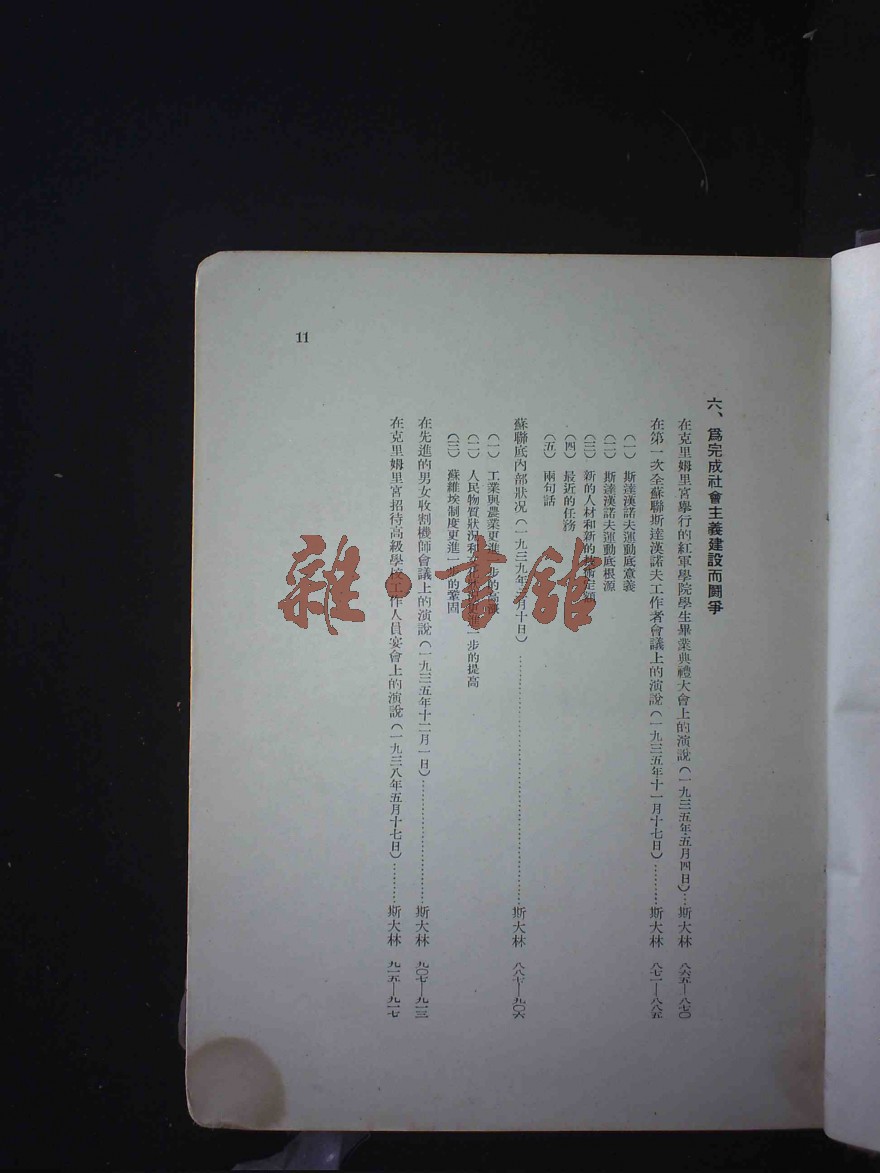 六、爲完成社會主義建設而鬭爭
在克里姆里宮舉行的紅軍學院學生畢業典禮大會上的演說(一九三五年五月四日)…斯大林 八六五—八七〇
在第一次全蘇聯斯達漢諾夫工作者會議上的演說(一九三五年十一月十七日)………斯大林 八七一—八八五
(一) 斯達漢諾夫運動底意義
(二) 斯達漢諾夫運動底根源
(三) 新的人材和新的技術定額
(四) 最近的任務
(五) 兩句話
蘇聯底內部狀况(一九三九年三月十日)………斯大林 八八七—九〇六
(一) 工業與農業更進一步的高漲
(二) 人民物質狀況和文化 進一步的提高
(三) 蘇維埃制度更進一步的鞏固
在先進的男女收割機師會議上的演說(一九三五年十二月一日)………斯大林 九〇七—九一三
在克里姆里宮招待高級學校工作人員宴會上的演說(一九三八年五月十七日)………斯大林 九一五—九一七
11
雜·書館